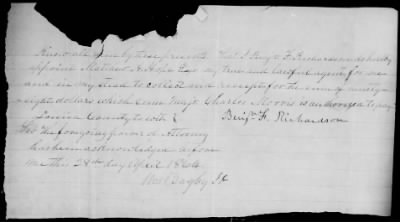 Know all men by these presents that I Benj. F. Richardson do hereby
appoint Mathew A. Hope Esqr my true and lawful agent for me
and in my stead to collect and receipt for the sum of ninety
eight dollars which Conr Majr Charles Morris is authorized to pay
Louisa County to wit
Benjn F. Richardson
The foregoing power of Attorney
has been acknowledged before
me this 28th day April 1864